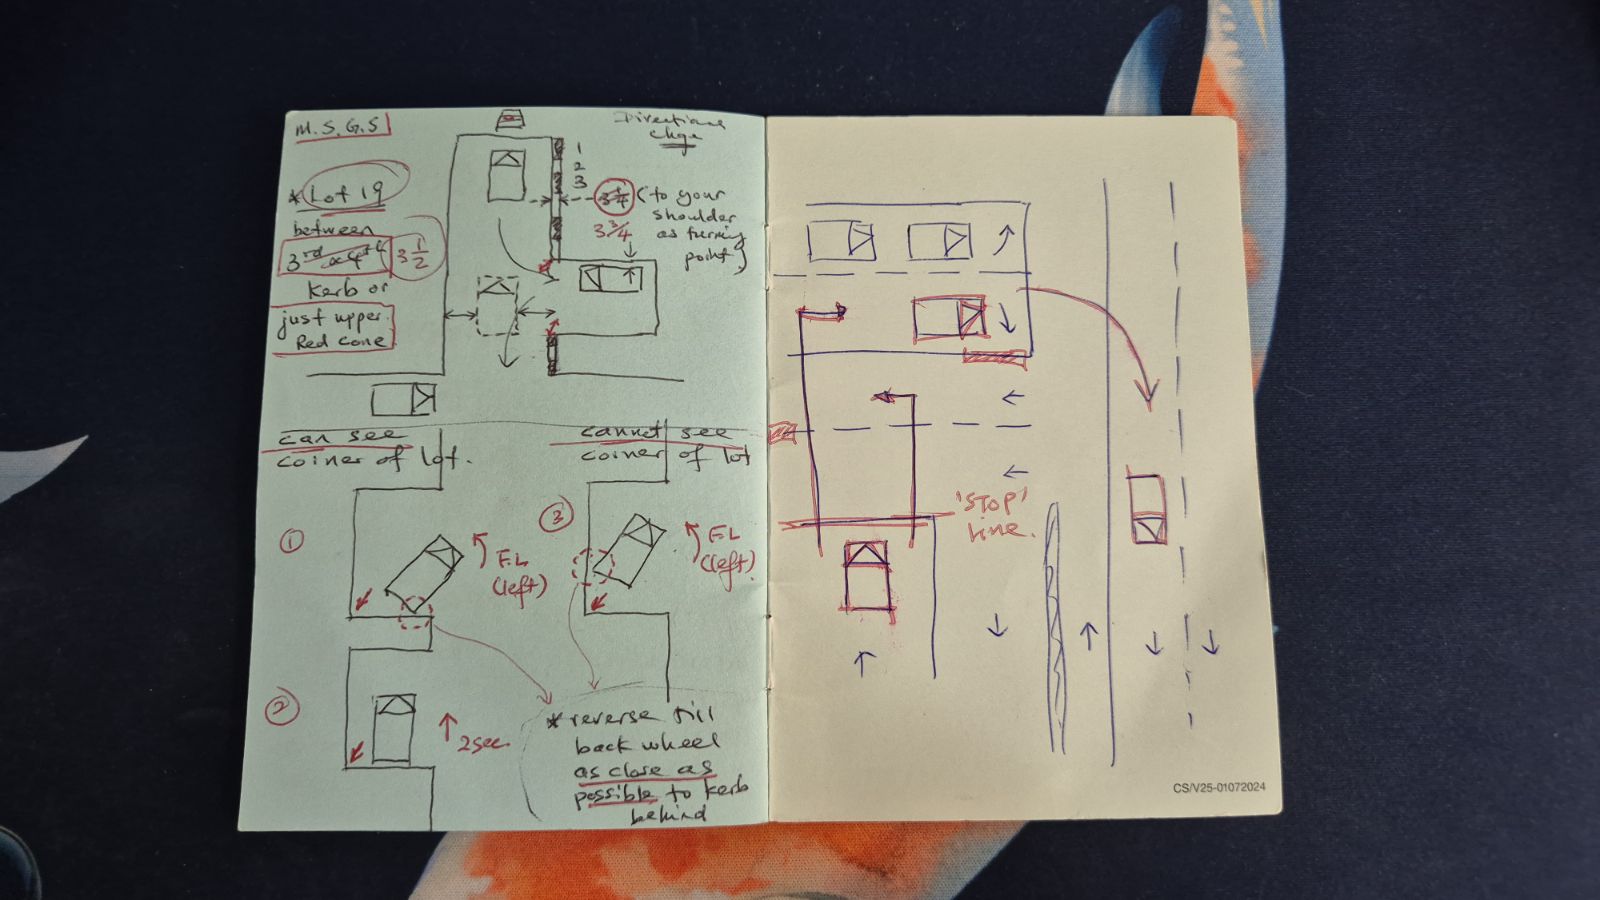 M.S.G.S
* Lot 19
between
3rd & 4th 3 1/2
kerb or
just upper
Red cone
Directional
chge
1
2
3
3 1/4 (to your
shoulder
3 3/4 as turning
point)
can see
corner of lot.
cannot see
corner of lot
1
F.L
(left)
3
F.L
(left)
2
2 sec.
* reverse till
back wheel
as close as
possible to kerb
behind
'STOP'
line.
CS/V25-01072024